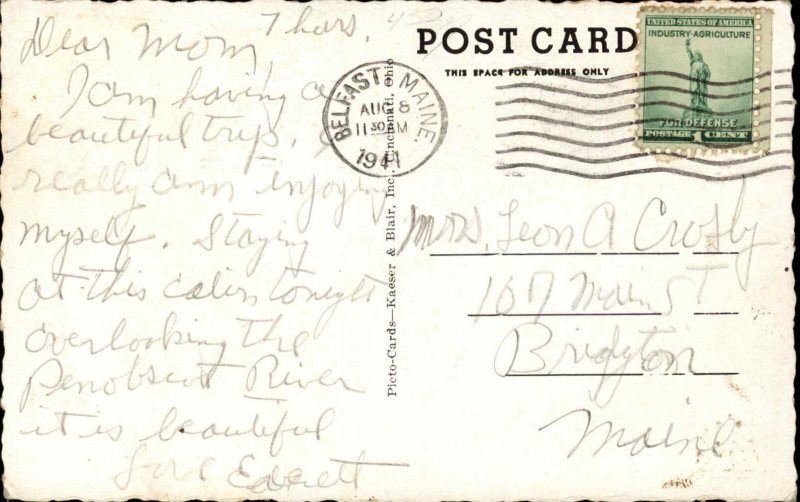 Thurs.
Dear Mom,
I am having a
beautiful trip. I
really am enjoying
myself. Staying
at this cabin tonight
overlooking the
Penobscot River
it is beautiful
Love Everett
POST CARD
THIS SPACE FOR ADDRESS ONLY
BELFAST, MAINE.
AUG 8
11 30 AM
1941
UNITED STATES OF AMERICA
INDUSTRY·AGRICULTURE
FOR DEFENSE
POSTAGE 1 CENT
Picto-Cards—Kaeser & Blair, Inc., Cincinnati, Ohio
Mrs. Leon A Crosby
107 Main St
Bridgton
Maine